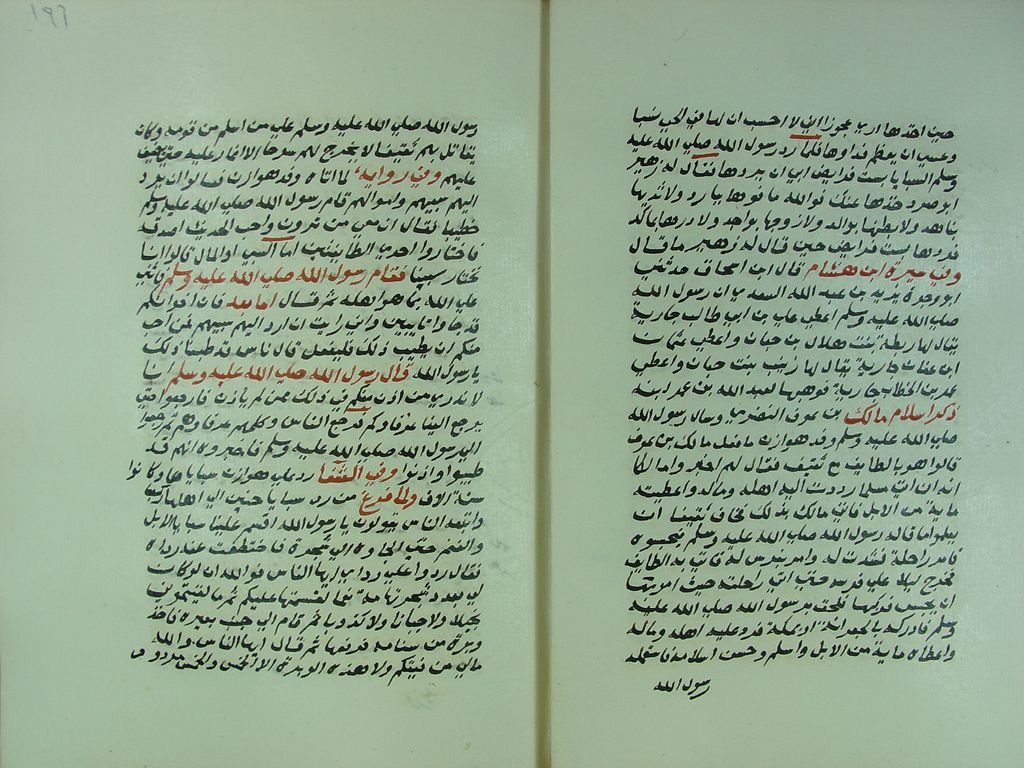 حين اخذها اري عجوزا اني لا احسب ان لها في الحي نسبا
وعسي ان يعظم فداوها فلما رد رسول الله صلي الله عليه
وسلم السبايا بست فرايض ابي ان يردها فقال له زهير
ابو صرد خذها عنك فوالله ما فوها ببارد ولا ثديها
بناهد ولا بطنها بوالد ولا زوجها بواجد ولا درها بماكد
فردها بست فرايض حين قال له زهير ما قال
وفي سيرة ابن هشام قال ابن اسحاق حدثني
ابو وجزة يزيد بن عبيد الله السعدي ان رسول الله
صلي الله عليه وسلم اعطي علي بن ابي طالب جارية
يقال لها ريطة بنت هلال بن حيان واعطي عثمان
ابن عفان جارية يقال لها زينب بنت حيان واعطي
عمر بن الخطاب جارية فوهبها لعبد الله بن عمر ابنه
ذكر اسلام مالك بن عوف النضري وسال رسول الله
صلي الله عليه وسلم وفد هوازن ما فعل مالك بن عوف
قالوا هو بالطايف مع ثقيف فقال لهم اخبروا مالكا
انه ان اتي مسلما رددت اليه اهله وماله واعطيته
ماية من الابل فاتي مالك بذلك فخاف ثقيفا ان
يعلموا ما قال له رسول الله صلي الله عليه وسلم فيحبسوه
فامر براحلة فشدت له وامر بفرس له فاتي به الطايف
فخرج ليلا علي فرسه حتي اتي راحلته حيث امر بها
ان تحبس فركبها فلحق برسول الله صلي الله عليه
وسلم فادركه بالجعرانة او بمكة فرد عليه اهله وماله
واعطاه ماية من الابل واسلم وحسن اسلامه فاستعمله
رسول الله
١٩٦
رسول الله صلي الله عليه وسلم علي من اسلم من قومه وكان
يقاتل بهم ثقيفا لا يخرج لهم سرحا الا اغار عليه حتي ضيق
عليهم وفي رواية لما اتاه وفد هوازن فسالوا ان يرد
اليهم سبيهم واموالهم قام رسول الله صلي الله عليه وسلم
خطيبا فقال ان معي من ترون واحب الحديث اصدقه
فاختاروا احدي الطايفتين اما السبي او المال قالوا انا
نختار سبينا فقام رسول الله صلي الله عليه وسلم فاثني
علي الله بما هو اهله ثم قال اما بعد فان اخوانكم
قد جاوا تايبين واني رايت ان ارد اليهم سبيهم فمن احب
منكم ان يطيب ذلك فليفعل قال ناس قد طيبنا ذلك
يا رسول الله قال رسول الله صلي الله عليه وسلم انا
لا ندري من اذن منكم في ذلك ممن لم ياذن فارجعوا حتي
يرجع الينا عرفاوكم فرجع الناس وكلمهم عرفاوهم ثم رجعوا
الي رسول الله صلي الله عليه وسلم فاخبروه انهم قد
طيبوا واذنوا وفي الشفا رد علي هوازن سباياها وكانوا
ستة الاف ولما فرغ من رد سبايا حنين الي اهلها ركب
واتبعه الناس يقولون يا رسول الله اقسم علينا سبايا الابل
والغنم حتي الجاوه الي شجرة فاختطفت عنه رداه
فقال ردوا علي رداي ايها الناس فوالله ان لو كان
لي بعدد شجر تهامة نعما لقسمتها عليكم ثم ما لقيتموني
بخيلا ولا جبانا ولا كذوبا ثم قام الي جنب بعيره فاخذ
وبرة من سنامه فرفعها ثم قال ايها الناس والله
مالي من فيئكم ولا هذه الوبرة الا الخمس والخمس مردود